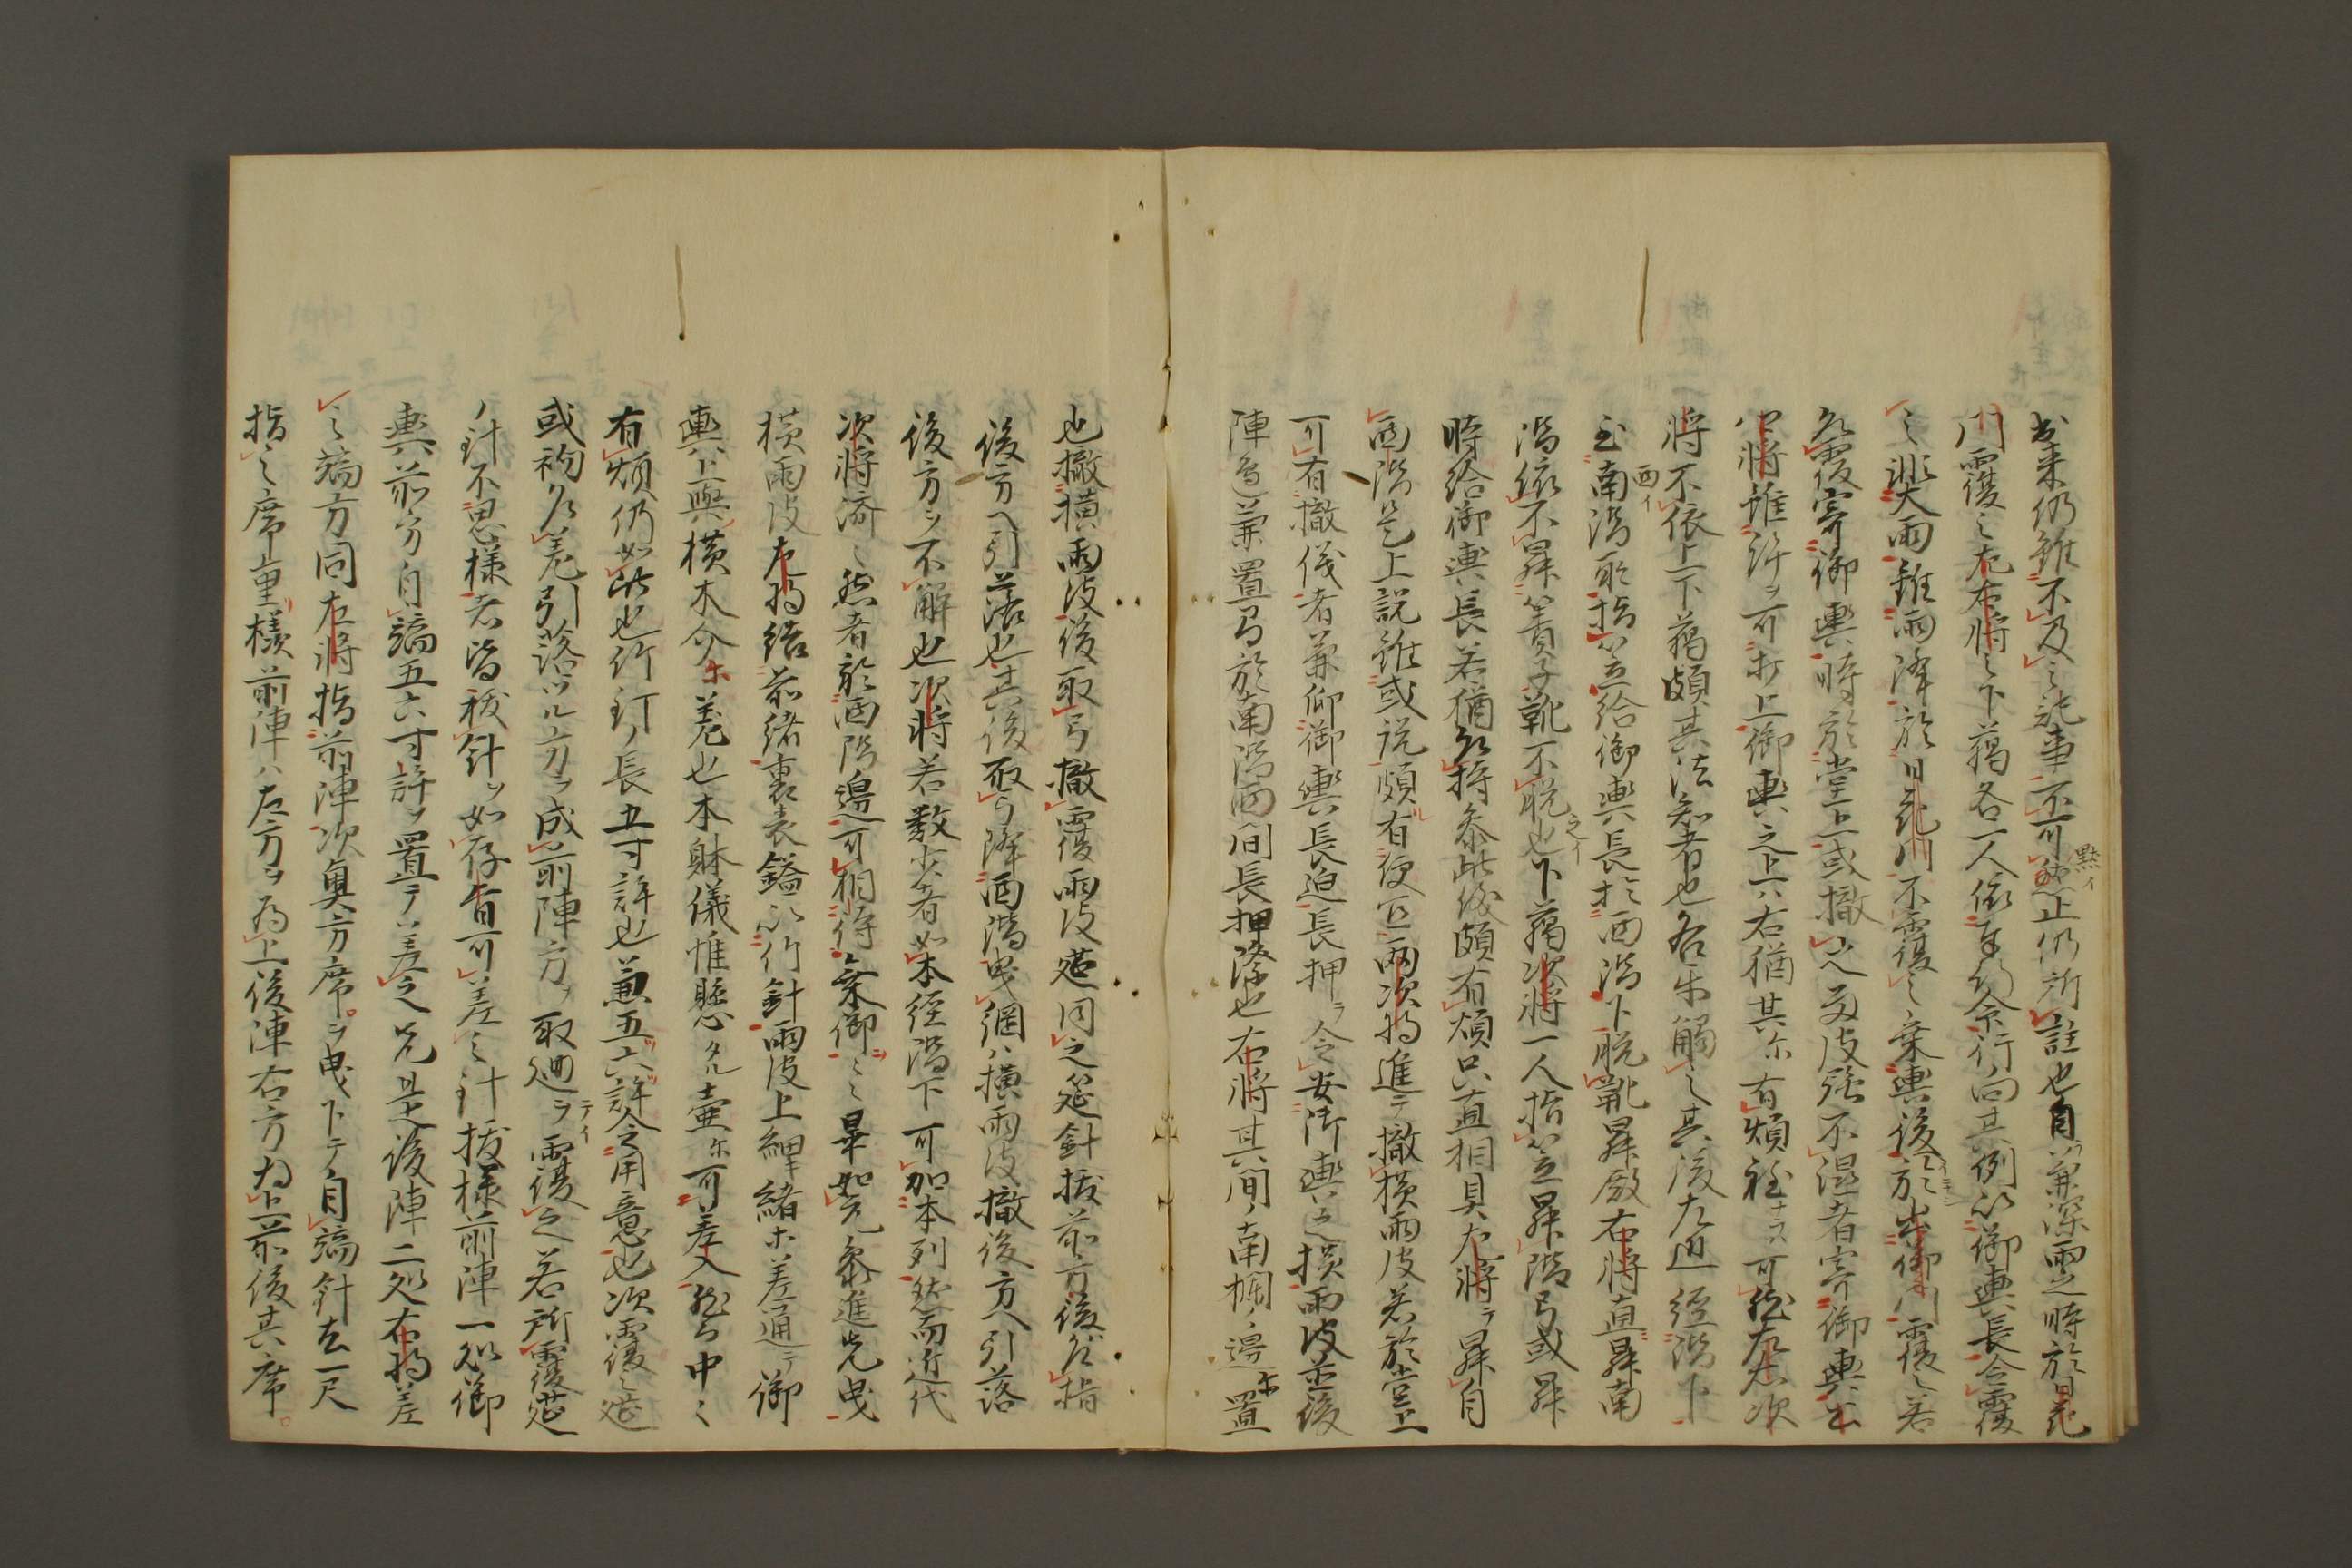 出来仍雖不及之記事不可黙止仍所註也自兼深雨之時於日花
門覆之左右将之下臈各一人依奉行向其例以御輿長令覆
之逃大雨雖雨降於日花門不覆之乗輿後於出御門覆之若
寄御輿時於堂上或撤之雨皮強不湿者寄御輿出
中将誰許ヲ可打上御輿之上ハ右猶其ホ有煩左右次
将不依上下臈頗其法知者也各ホ觸之其後左近経階下
至南階西イ取指笠給御輿長於西階下脱靴昇殿右将直昇南
階依不昇簀子靴不脱也之イ下臈次将一人指笠昇階弓或昇
時給御輿長若猶持参此後頗有煩只直相具左将テ昇自
西階是上説雖或説頗有便歟両次将進テ撤横雨皮若於堂上
可有撤儀者兼仰御輿長迫長押ヲ令安御輿之横雨皮并後
陣兼置弓於南階西間長押際也右将其間ノ南欄ノ邊ホ置
也撤横雨皮後取弓撤覆雨皮筵同之筵針抜前方後指
後方ヘ引落也其後取弓降西階曳綱ハ横雨皮撤後方ヘ引落
後方ヲ不解也次将若数少者如本経階下可加本列然而近代
次将済々然者於西階邊可相待乗御々々畢如元参進先曳
横雨皮左将結前緒裏表鎰以竹針雨皮上細緒ホ差通テ御
輿上與横木介ホ差也本躰儀惟懸タル壷ホ可差入弓中々
有煩仍如此也竹釘ノ長五寸許也兼五六許令之用意也次覆之筵
或初差引落ツル方ヲ成前陣方ヲ取廻ラテイ覆之若所覆筵
ノ針不思様者皆抜針ヲ如存旨可差之針抜様前陣一处御
輿前方自端五六寸許ヲ置テハ差之兄是後陣二処右将差
之端方同左将指前陣次奥方席ヲ曳下テ自端針去一尺
指之席重様前陣ハ左方ヲ為上後陣右方為上前後其席